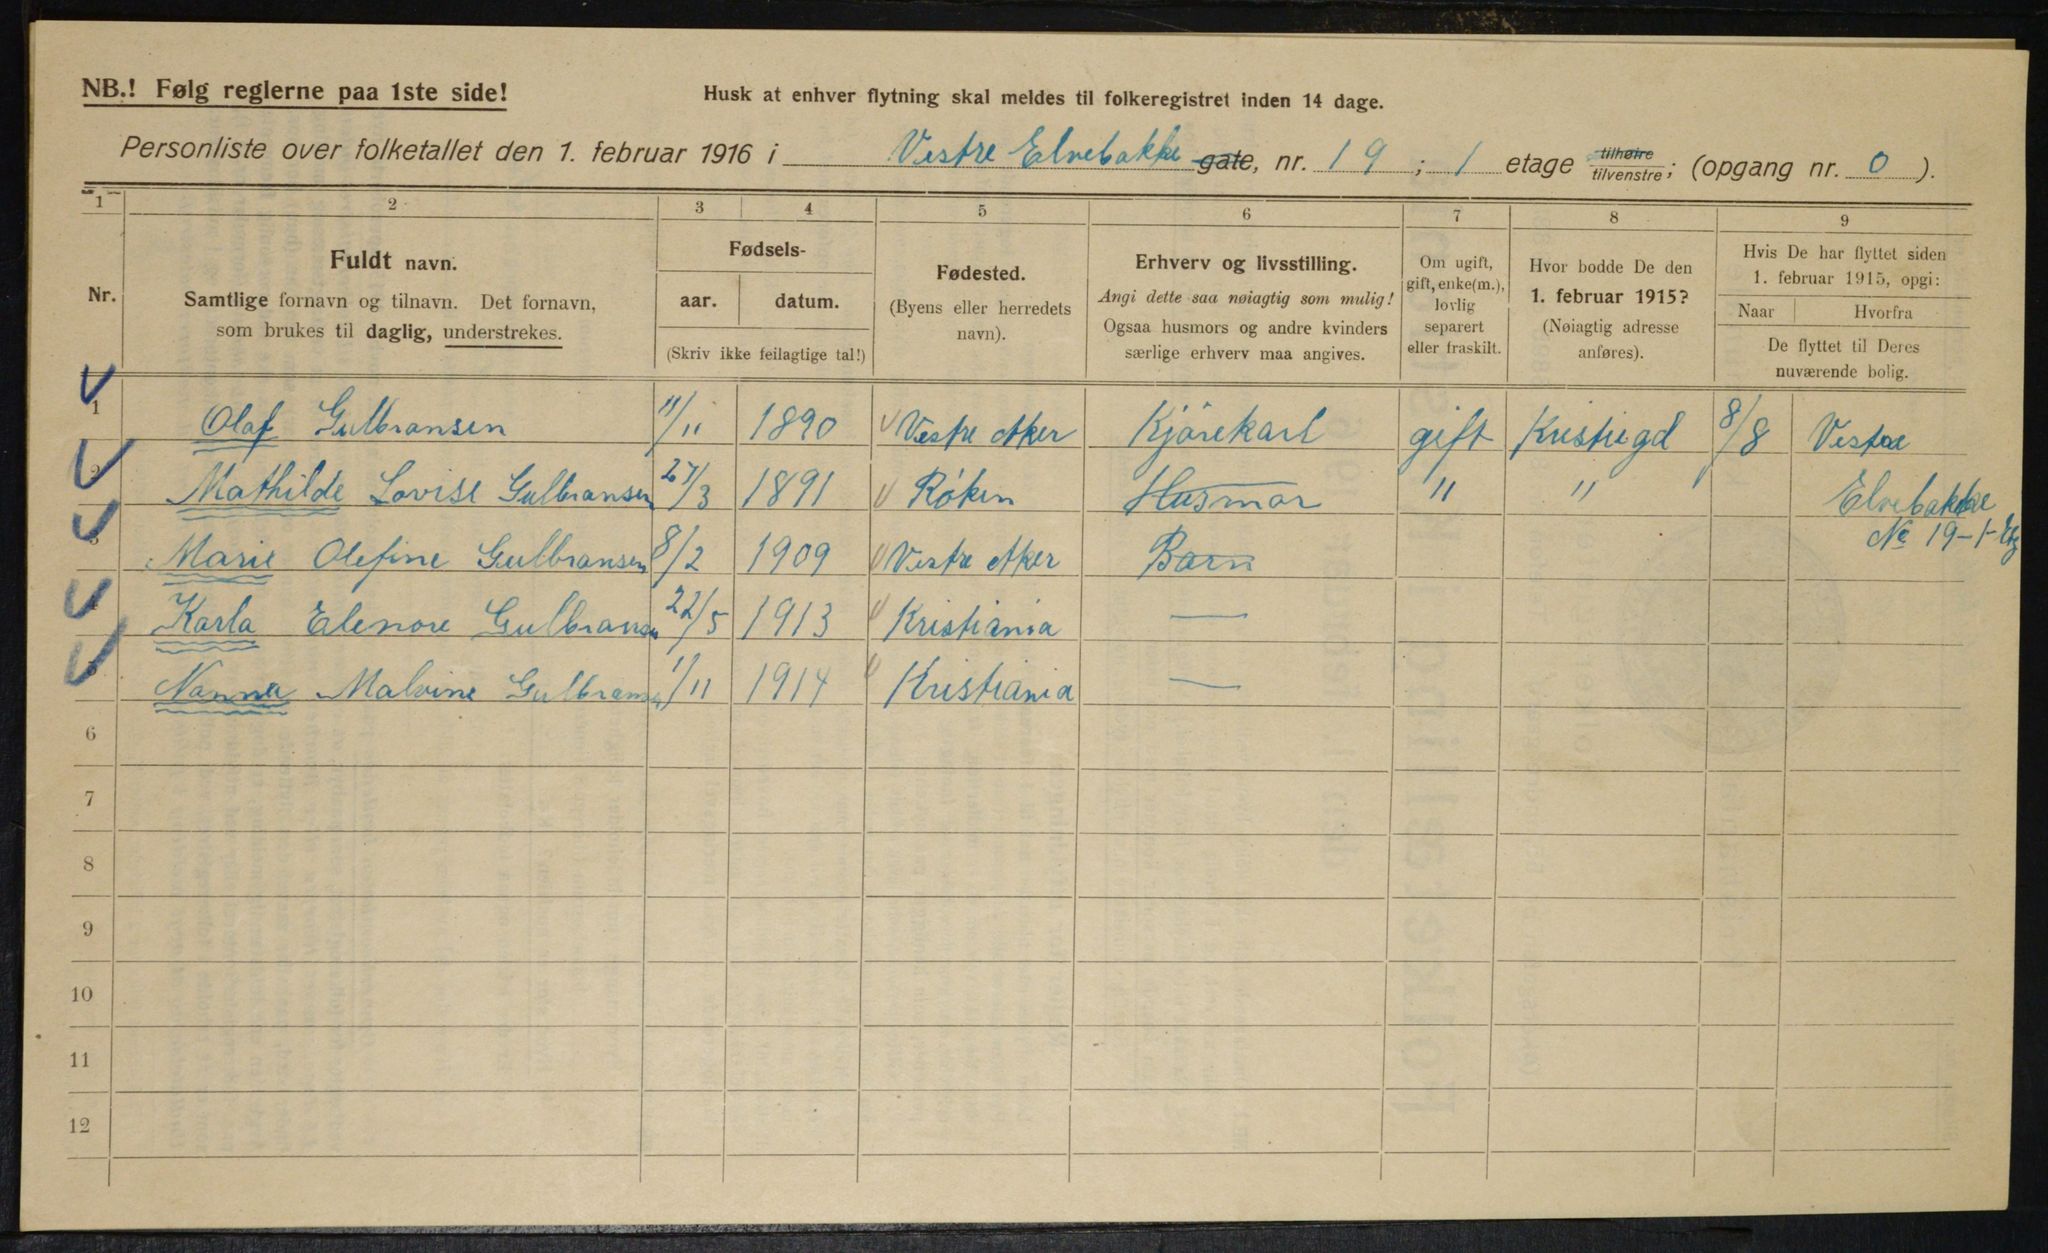 NB.! Følg reglerne paa 1ste side!
Husk at enhver flytning skal meldes til folkeregistret inden 14 dage.
Personliste over folketallet den 1. februar 1916 i Vestre Elvebakke gate, nr. 19 ; 1 etage tilhøire tilvenstre; (opgang nr. 0 ).
1 2 3 4 5 6 7 8 9
Nr.
Fuldt navn.
Samtlige fornavn og tilnavn. Det fornavn,
som brukes til daglig, understrekes.
Fødsels-
aar. datum.
(Skriv ikke feilagtige tal!)
Fødested.
(Byens eller herredets
navn).
Erhverv og livsstilling.
Angi dette saa nøiagtig som mulig!
Ogsaa husmors og andre kvinders
særlige erhverv maa angives.
Om ugift,
gift, enke(m.),
lovlig
separert
eller fraskilt.
Hvor bodde De den
1. februar 1915?
(Nøiagtig adresse
anføres).
Hvis De har flyttet siden
1. februar 1915, opgi:
Naar Hvorfra
De flyttet til Deres
nuværende bolig.
1 Olaf Gulbransen 11/11 1890 Vestre Aker Kjørekarl gift Kristiegd 8/8 Vestre
2 Mathilde Lovise Gulbransen 27/3 1891 Røken Husmor " " Elvebakke
№ 19-1-Etg
3 Marie Olefine Gulbransen 8/2 1909 Vestre Aker Barn
4 Karla Elenore Gulbransen 22/5 1913 Kristiania —
5 Nanna Malvine Gulbransen 1/11 1914 Kristiania —
6
7
8
9
10
11
12